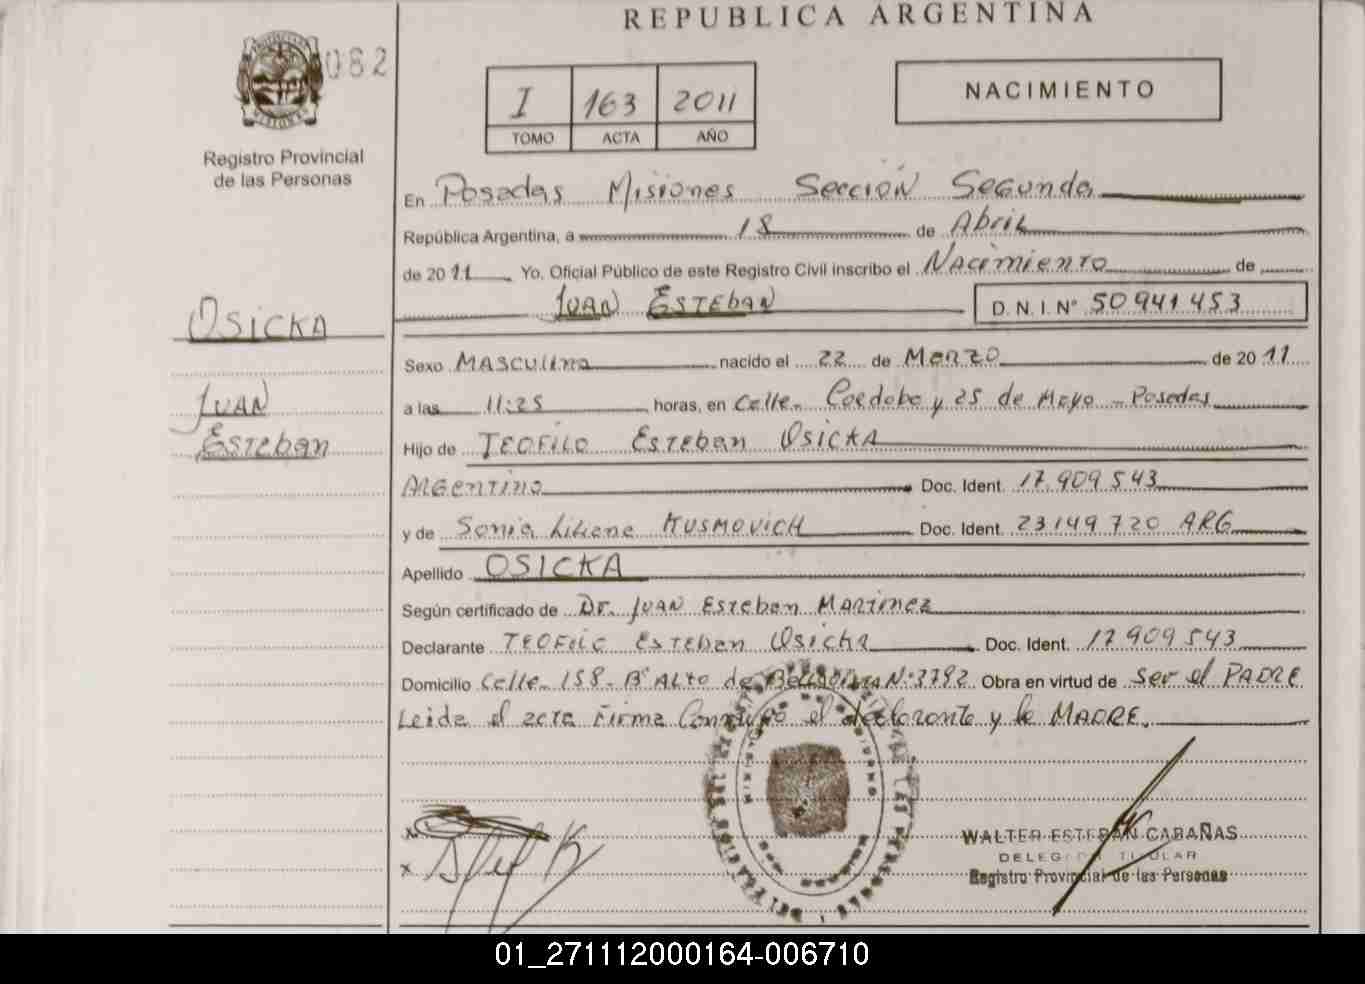 REPUBLICA ARGENTINA
082
Registro Provincial
de las Personas
I 163 2011
TOMO ACTA AÑO
NACIMIENTO
En Posadas Misiones Sección Segunda
República Argentina, a 18 de Abril
de 2011 Yo. Oficial Público de este Registro Civil inscribo el Nacimiento de
Juan Esteban D.N.I.Nº 50941453
OSICKA
Juan
Esteban
Sexo Masculino nacido el 22 de Marzo de 2011
a las 11:25 horas, en Calle. Cordoba y 25 de Mayo - Posadas
Hijo de Teofilo Esteban Osicka
Argentino Doc. Ident. 17.909.543
y de Sonia Liliana Kusmovich Doc. Ident. 23149720 ARG
Apellido OSICKA
Según certificado de Dr. Juan Esteban Martinez
Declarante Teofilo Esteban Osicka Doc. Ident. 17909543
Domicilio Calle. 158. Bº Alto de N:3792 Obra en virtud de Ser el PADRE
Leida el acta firma el declarante y la MADRE.
WALTER ESTEBAN CABAÑAS
DELEGADO TITULAR
Registro Provincial de las Personas
01_271112000164-006710